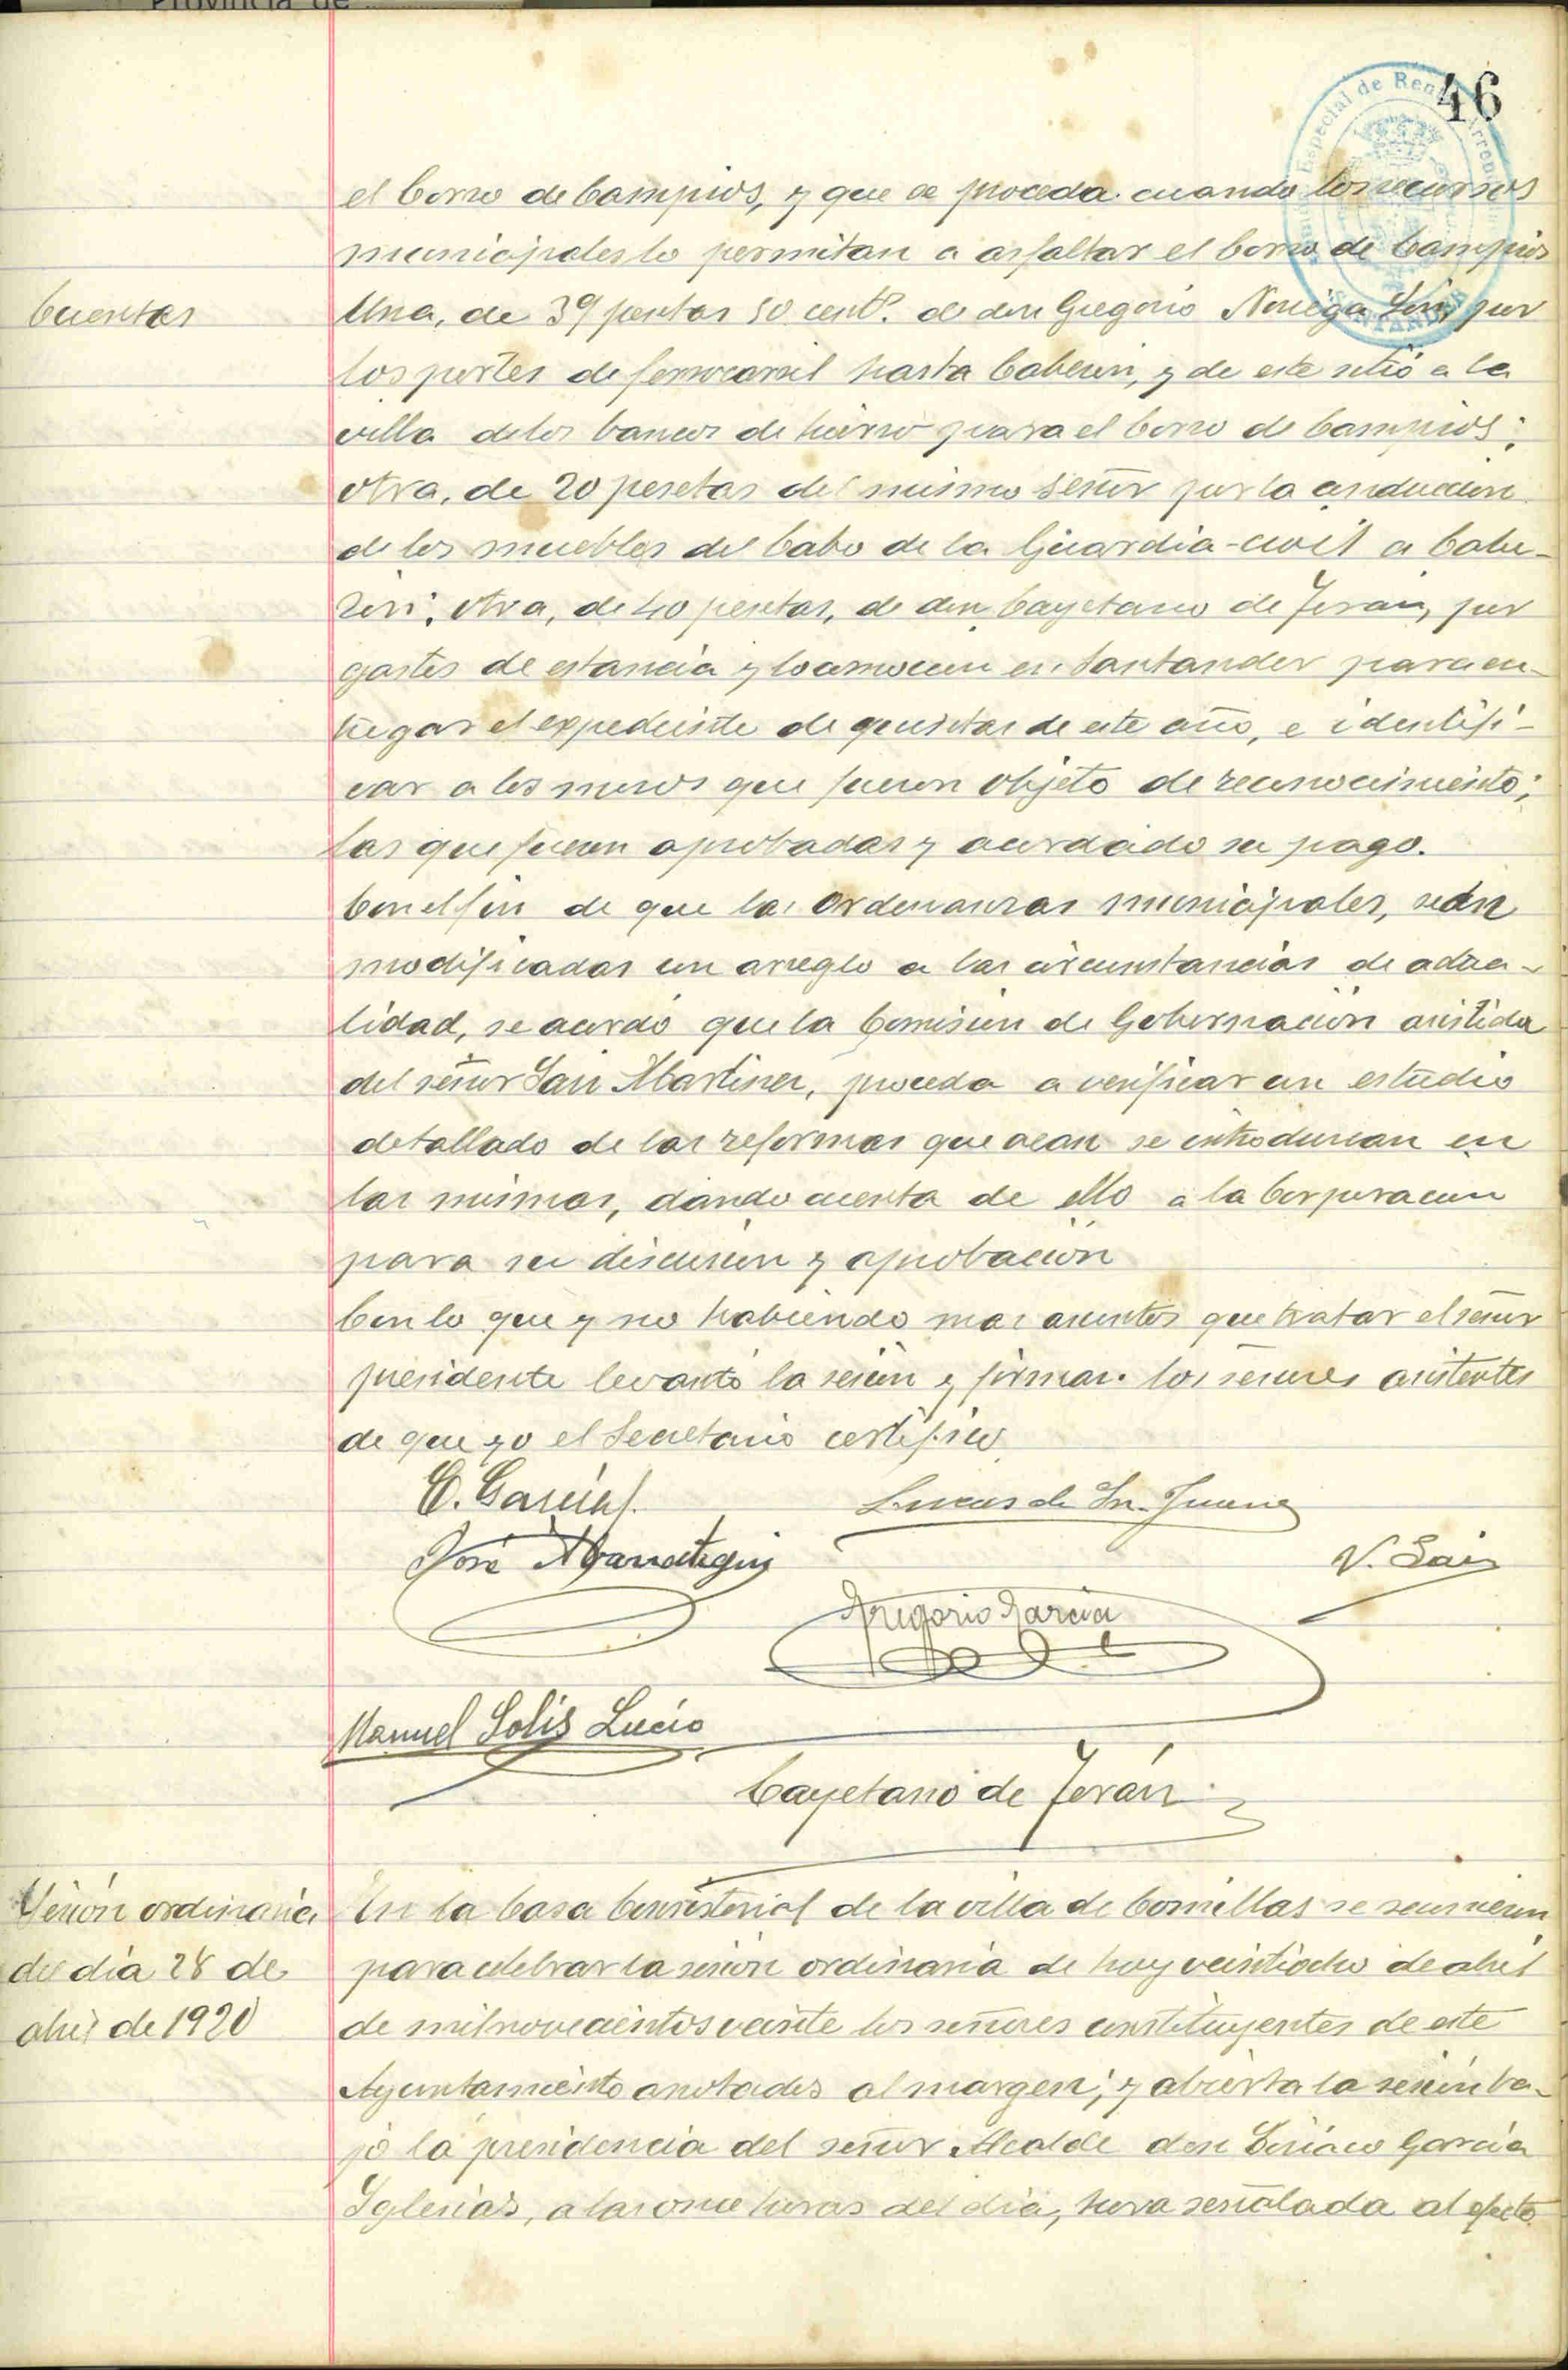 Provincia de
46
el Corro de Campios, y que se proceda cuando los recursos
municipales lo permitan a asfaltar el Corro de Campios
Cuentas
Una, de 39 pesetas 50 cent.s de don Gregorio Noriega Luis, por
los portes de ferrocarril hasta Cabezon, y de este sitio a la
villa de los bancos de hierro para el Corro de Campios;
otra, de 20 pesetas del mismo señor por la conduccion
de los muebles del Cabo de la Guardia-civil a Cabe-
zon; otra, de 40 pesetas, de don Cayetano de Terán, por
gastos de estancia y locomocion en Santander para en-
tregar el expediente de quintas de este año, e identifi-
car a los mozos que fueron objeto de reconocimiento;
las que fueron aprobadas y acordado su pago.
Con el fin de que las Ordenanzas municipales, sean
modificadas con arreglo a las circunstancias de actua-
lidad, se acordó que la Comision de Gobernación asistida
del señor San Martinez, proceda a verificar un estudio
detallado de las reformas que sean se introduzcan en
las mismas, dando cuenta de ello a la Corporacion
para su discusion y aprobación
Con lo que y no habiendo mas asuntos que tratar el señor
presidente levantó la sesión y firman los señores asistentes
de que yo el Secretario certifico
C. García
Lucas de Sn. Juan
José
V. Sain
Gregorio García
Manuel Solís Lucio
Cayetano de Terán
Sesión ordinaria
del dia 28 de
abril de 1920
En la Casa Consistorial de la villa de Comillas se reunieron
para celebrar la sesión ordinaria de hoy veintiocho de abril
de mil novecientos veinte los señores constituyentes de este
Ayuntamiento anotados al margen; y abierta la sesión ba-
jo la presidencia del señor Alcalde don Ciriaco García
Iglesias, a las once horas del dia, hora señalada al efecto